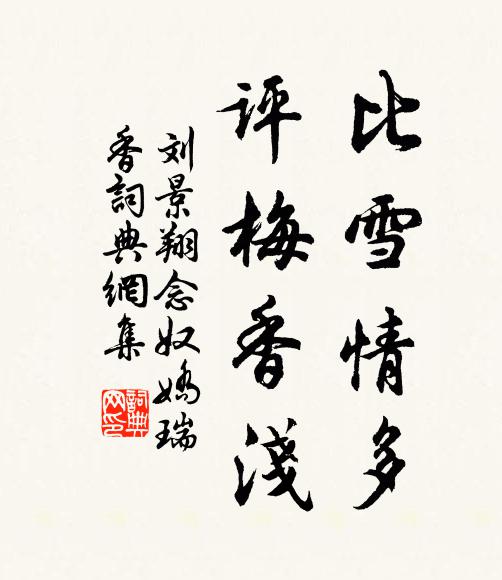 比雪情多
评梅香淺
刘景翔念奴嬌瑞
香詞典網集
詞典网印